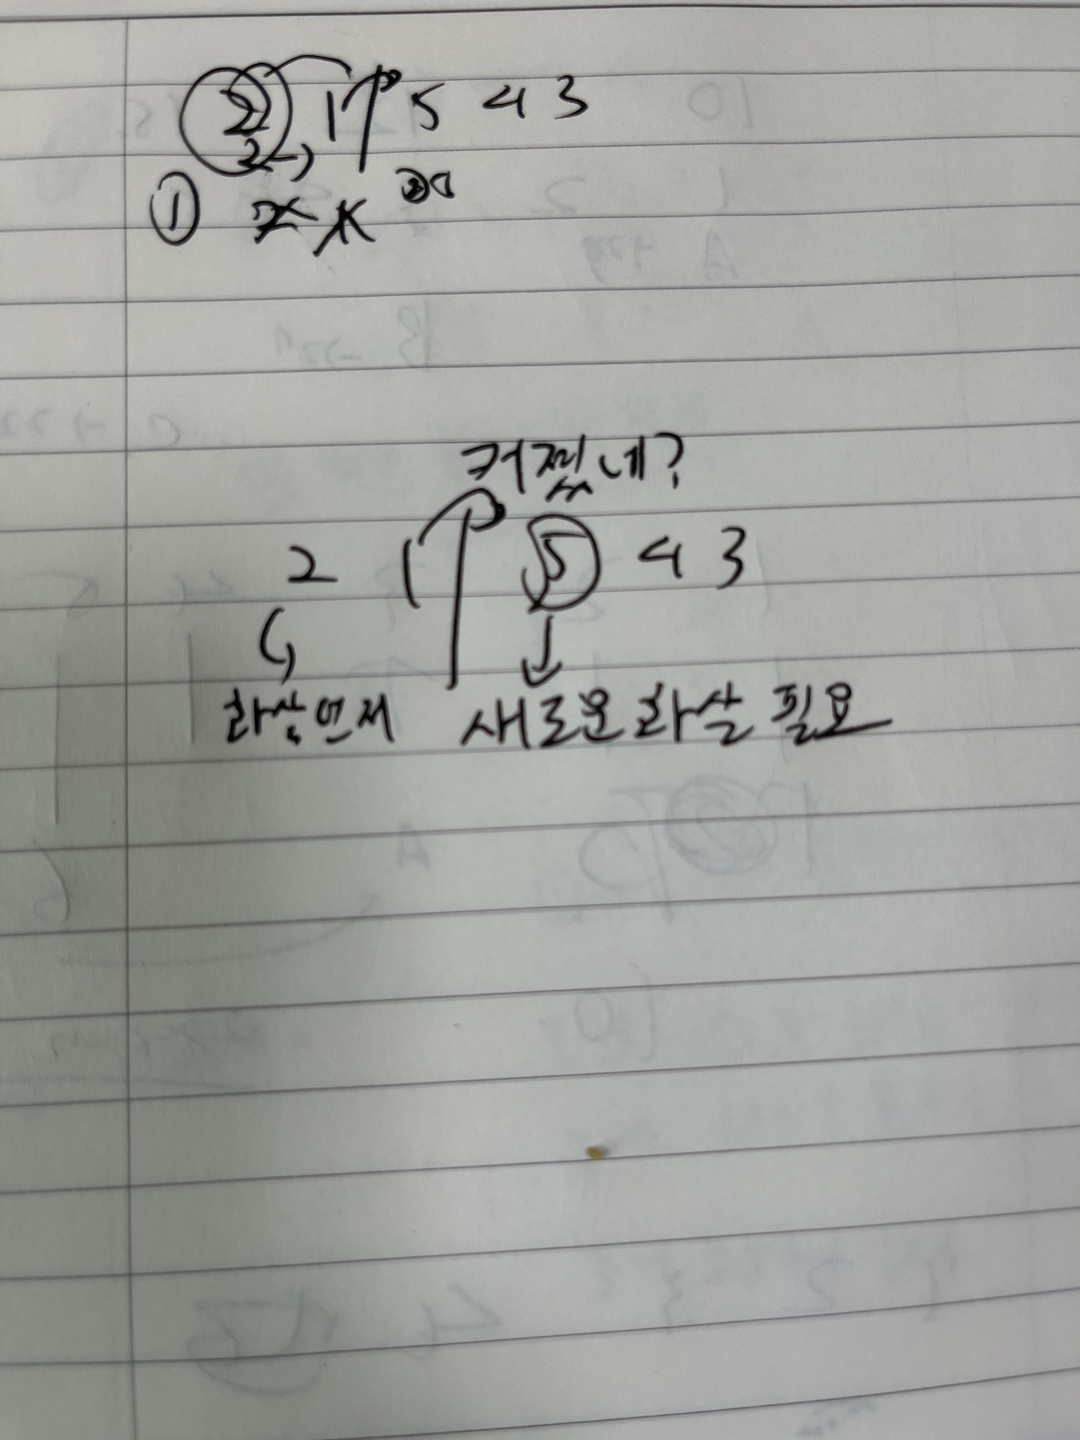 2 1 5 4 3
①
커졌네?
2 1 5 4 3
화살 먼저 새로운 화살 필요